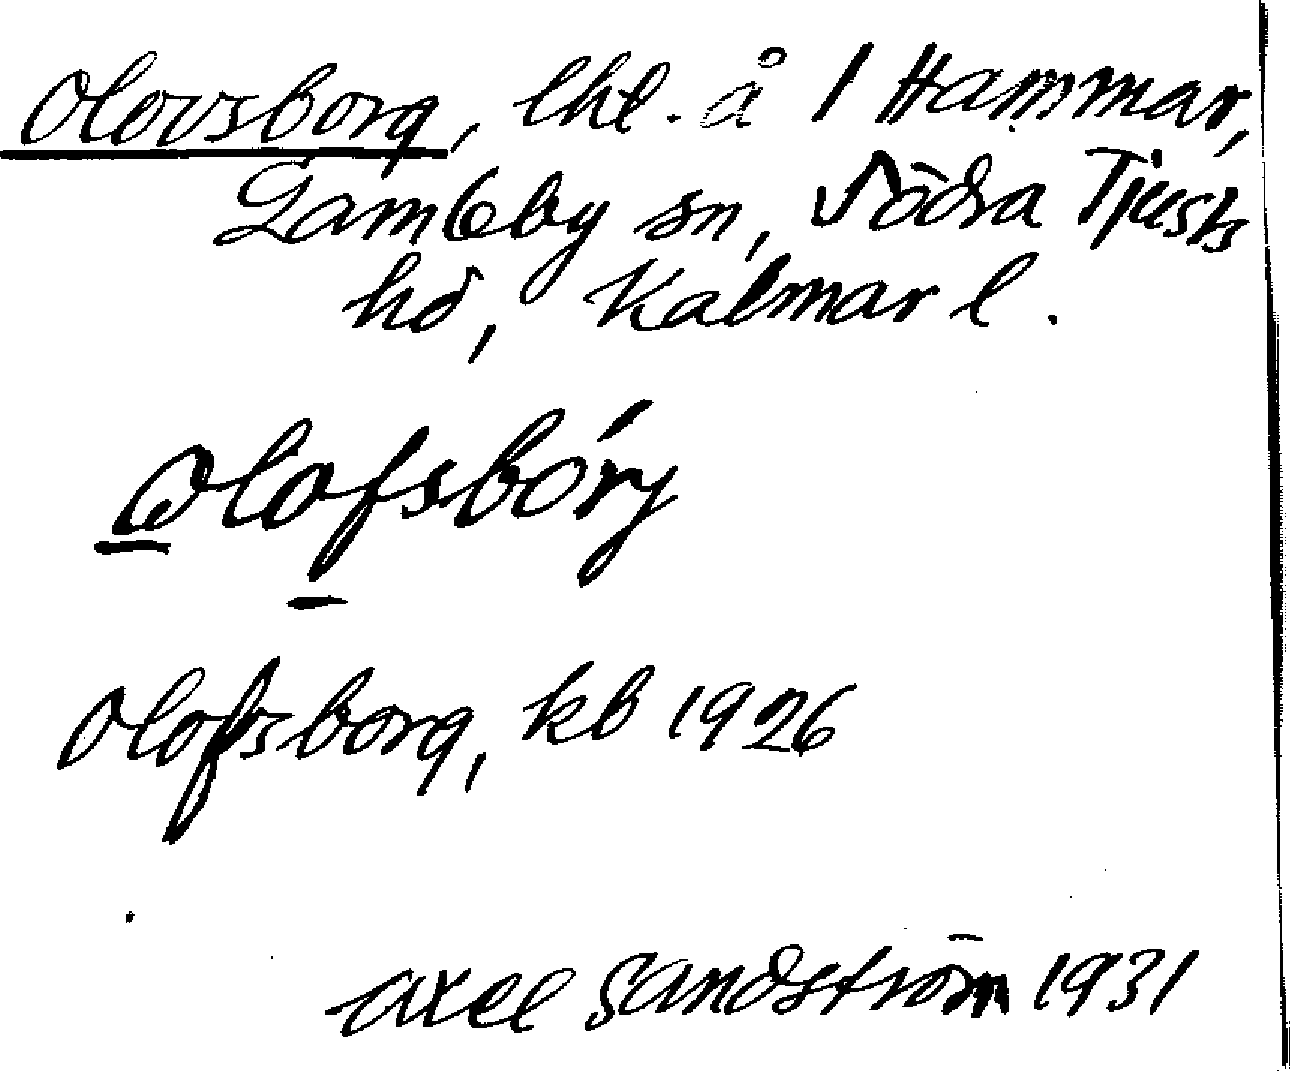 Olovsborg, lht. å 1 Hammar,
Gamleby sn, Södra Tjusts
hd, Kalmar l.
Olofsbórg
Olofsborg, kb 1926
Axel Sandström 1931